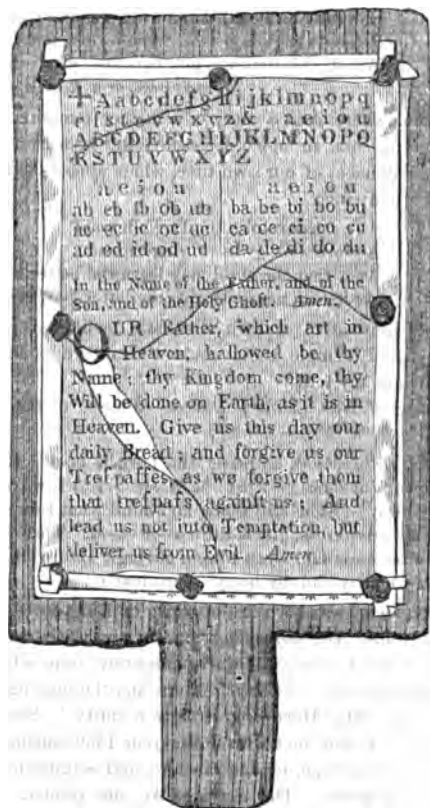 + Aabcdefghijklmnopq
rſstuvwxyz& aeiou
ABCDEFGHIJKLMNOPQ
RSTUVWXYZ
a e i o u a e i o u
ab eb ib ob ub ba be bi bo bu
ac ec ic oc uc ca ce ci co cu
ad ed id od ud da de di do du
In the Name of the Father, and of the
Son, and of the Holy Ghoſt. Amen.
OUR Father, which art in
Heaven, hallowed be thy
Name; thy Kingdom come, thy
Will be done on Earth, as it is in
Heaven. Give us this day our
daily Bread; and forgive us our
Treſpaſſes, as we forgive them
that treſpaſs againſt us: And
lead us not into Temptation, but
deliver us from Evil. Amen